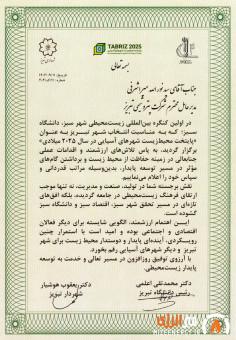 TABRIZ 2025
بسمه تعالی
جناب آقای سید نورالله میراشرفی
مدیرعامل محترم شرکت پتروشیمی تبریز
در اولین کنگره بین‌المللی زیست‌محیطی شهر سبز، دانشگاه
سبز؛ که به مناسبت انتخاب شهر تبریز به عنوان
«پایتخت زیست‌محیطی شهرهای آسیایی در سال ۲۰۲۵ میلادی»
برگزار گردید، به پاس تلاش‌های ارزشمند و اقدامات عملی
جنابعالی در زمینه حفاظت از محیط زیست و برداشتن گام‌های
مؤثر در مسیر توسعه پایدار، بدین‌وسیله مراتب قدردانی و
سپاس خود را اعلام می‌نماییم.
نقش برجسته شما در تولید، صنعت و مدیریت، نه تنها موجب
ارتقای فرهنگ زیست‌محیطی در جامعه گردیده، بلکه افق‌های
تازه‌ای در مسیر تحقق شهر سبز، اقتصاد سبز و دانشگاه سبز
گشوده است.
این اهتمام ارزشمند، الگویی شایسته برای دیگر فعالان
اقتصادی و اجتماعی بوده و امید است با استمرار چنین
رویکردی، آینده‌ای پایدار و دوستدار محیط زیست برای شهر
تبریز و دیگر شهرهای آسیایی رقم بخورد.
با آرزوی توفیق روزافزون در مسیر تعالی و خدمت به توسعه
پایدار زیست‌محیطی.
دکتر محمدتقی اعلمی
رئیس دانشگاه تبریز
دکتر یعقوب هوشیار
شهردار تبریز